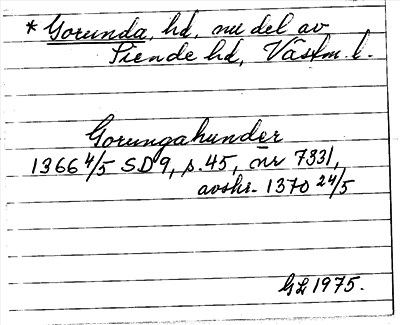 * Gorunda, hd, nu del av
Siende hd, Västm. l.
Gorungahundēr
1366 4/5 SD9, s. 45, nr 7331,
avskr. 1370 24/5
GL 1975.